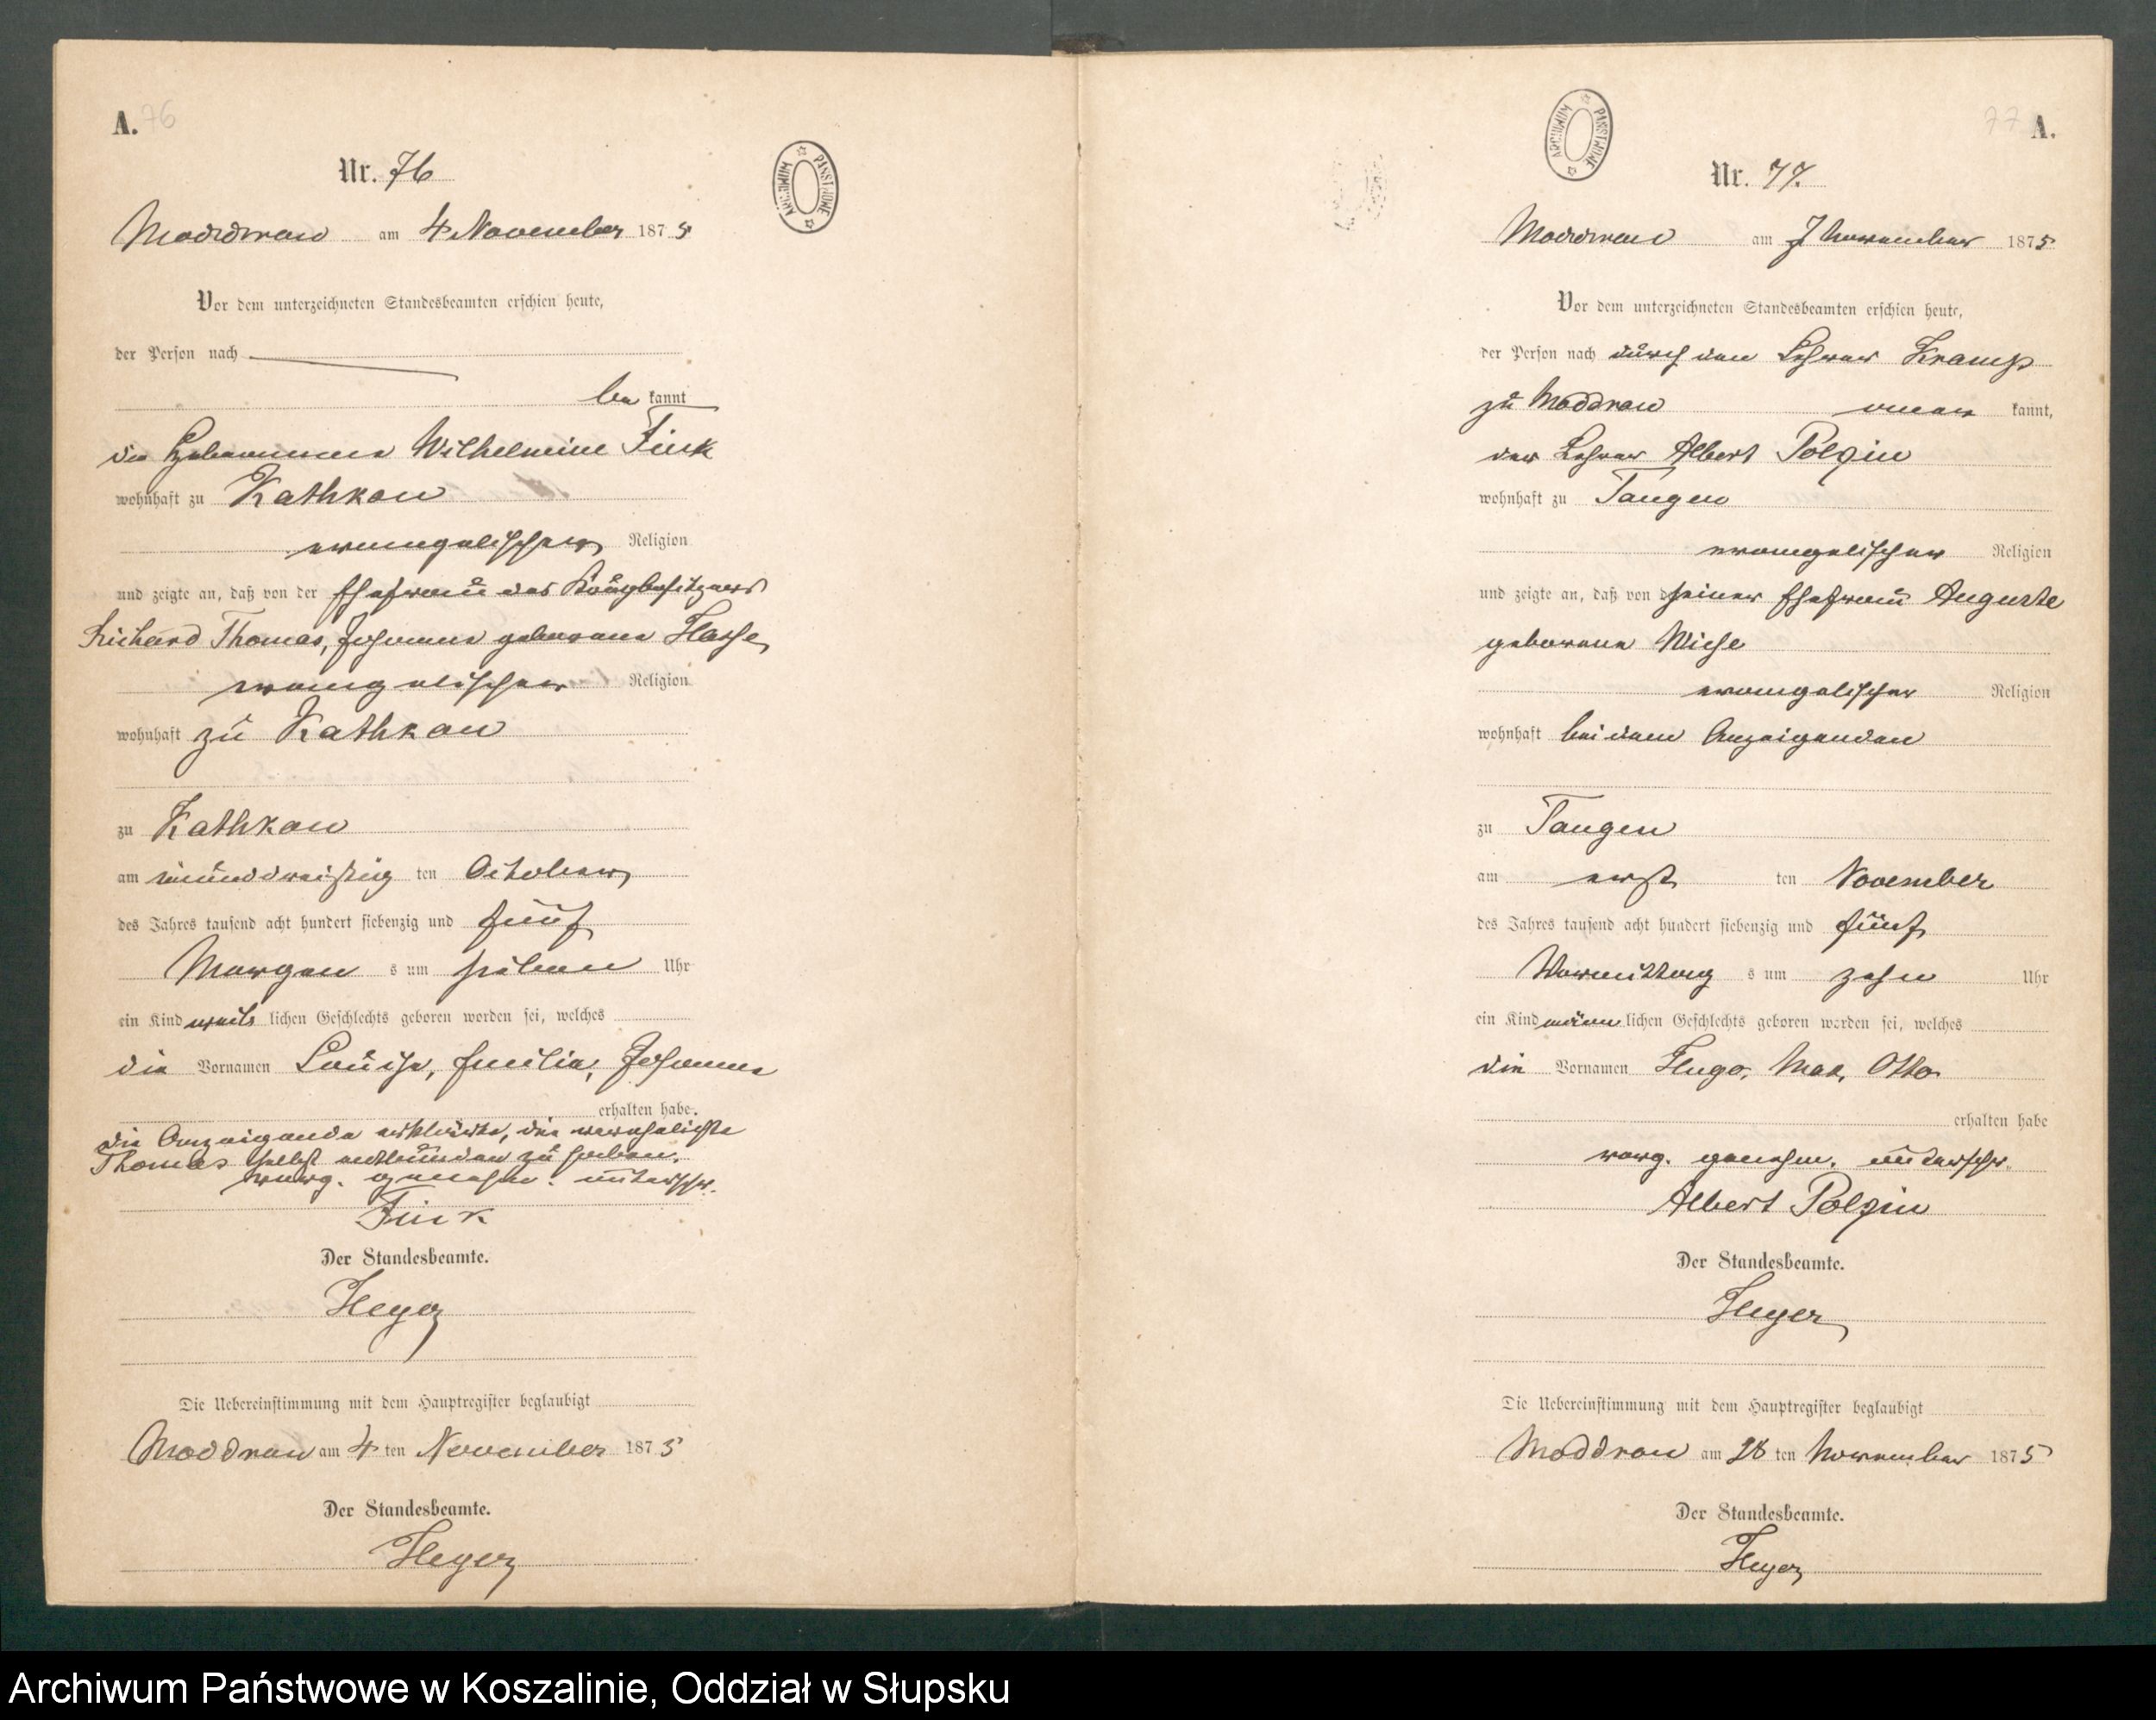 A. 76
Nr. 76
Moddrow am 4 November 1875
Vor dem unterzeichneten Standesbeamten erschien heute,
der Person nach
be kannt
die Hebamme Wilhelmine Fink
wohnhaft zu Kathkow
evangelischer Religion
und zeigte an, daß von der Ehefrau des
Richard Thomas, Johanna geborene Hasse
evangelischer Religion
wohnhaft zu Kathkow
zu Kathkow
am einunddreißig ten October
des Jahres tausend acht hundert siebenzig und fünf
Morgen s um sieben Uhr
ein Kind weib lichen Geschlechts geboren worden sei, welches
die Vornamen Louise, Emilie, Johanna
erhalten habe.
die Anzeigende erklärte, die verehelichte
Thomas selbst entbunden zu haben.
vorg. genehm. unterschr.
Fink
Der Standesbeamte.
Heyer
Die Uebereinstimmung mit dem Hauptregister beglaubigt
Moddrow am 4 ten November 1875
Der Standesbeamte.
Heyer
ARCHIWUM PAŃSTWOWE
77 A.
Nr. 77.
Moddrow am 7 November 1875
Vor dem unterzeichneten Standesbeamten erschien heute,
der Person nach durch den Lehrer Kramp
zu Moddrow kannt,
der Lehrer Albert Polzin
wohnhaft zu Tangen
evangelischer Religion
und zeigte an, daß von seiner Ehefrau Auguste
geborene Wiese
evangelischer Religion
wohnhaft bei dem Anzeigenden
zu Tangen
am erst ten November
des Jahres tausend acht hundert siebenzig und fünf
Vormittag s um zehn Uhr
ein Kind männ lichen Geschlechts geboren worden sei, welches
die Vornamen Hugo, Max, Otto
erhalten habe
vorg. genehm. unterschr.
Albert Polzin
Der Standesbeamte.
Heyer
Die Uebereinstimmung mit dem Hauptregister beglaubigt
Moddrow am 28 ten November 1875
Der Standesbeamte.
Heyer
ARCHIWUM PAŃSTWOWE
Archiwum Państwowe w Koszalinie, Oddział w Słupsku